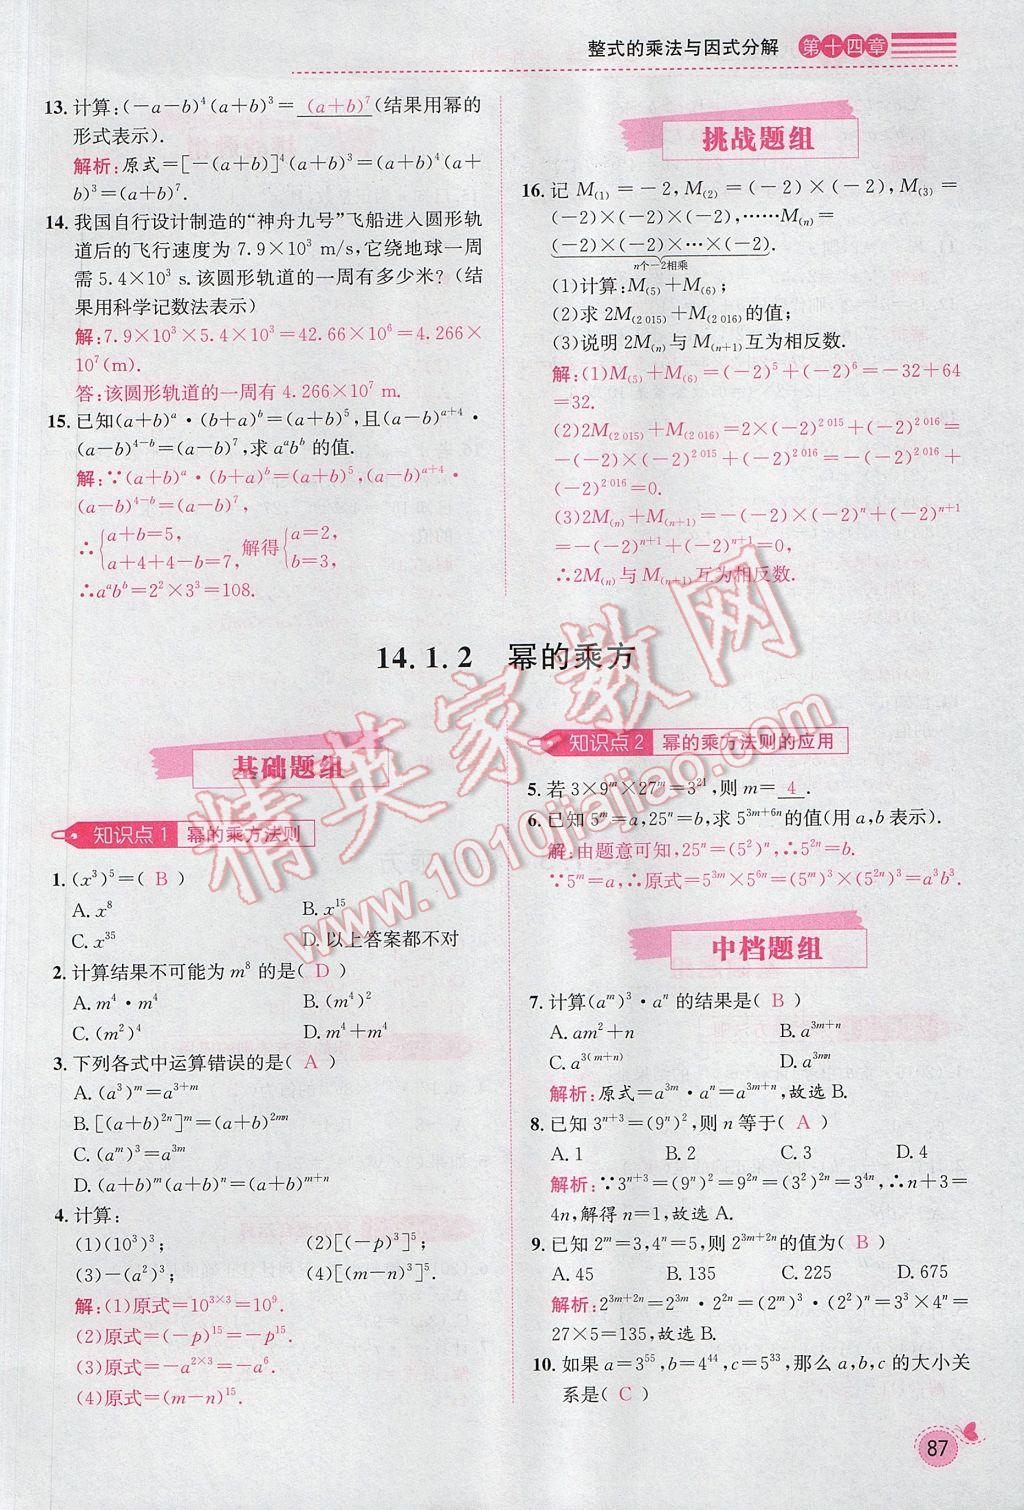 整式的乘法与因式分解 第十四章
13. 计算:(-a-b)⁴(a+b)³= (a+b)⁷ (结果用幂的
形式表示).
解析:原式=[-(a+b)]⁴(a+b)³=(a+b)⁴(a+
b)³=(a+b)⁷.
14. 我国自行设计制造的“神舟九号”飞船进入圆形轨
道后的飞行速度为 7.9×10³ m/s,它绕地球一周
需 5.4×10³ s.该圆形轨道的一周有多少米?(结
果用科学记数法表示)
解:7.9×10³×5.4×10³=42.66×10⁶=4.266×
10⁷(m).
答:该圆形轨道的一周有 4.266×10⁷ m.
15. 已知(a+b)ᵃ·(b+a)ᵇ=(a+b)⁵,且(a-b)ᵃ⁺⁴·
(a-b)⁴⁻ᵇ=(a-b)⁷,求 aᵃbᵇ 的值.
解:∵(a+b)ᵃ·(b+a)ᵇ=(a+b)⁵,(a-b)ᵃ⁺⁴
·(a-b)⁴⁻ᵇ=(a-b)⁷,
∴{a+b=5, a+4+4-b=7, 解得{a=2, b=3,
∴aᵃbᵇ=2²×3³=108.
挑战题组
16. 记 M₍₁₎=-2,M₍₂₎=(-2)×(-2),M₍₃₎=
(-2)×(-2)×(-2),……M₍ₙ₎=
(-2)×(-2)×…×(-2).
n个-2相乘
(1)计算:M₍₅₎+M₍₆₎;
(2)求 2M₍₂ ₀₁₅₎+M₍₂ ₀₁₆₎的值;
(3)说明 2M₍ₙ₎与 M₍ₙ₊₁₎互为相反数.
解:(1)M₍₅₎+M₍₆₎=(-2)⁵+(-2)⁶=-32+64
=32.
(2)2M₍₂ ₀₁₅₎+M₍₂ ₀₁₆₎=2×(-2)² ⁰¹⁵+(-2)² ⁰¹⁶=
-(-2)×(-2)² ⁰¹⁵+(-2)² ⁰¹⁶=-(-2)² ⁰¹⁶+
(-2)² ⁰¹⁶=0.
(3)2M₍ₙ₎+M₍ₙ₊₁₎=-(-2)×(-2)ⁿ+(-2)ⁿ⁺¹
=-(-2)ⁿ⁺¹+(-2)ⁿ⁺¹=0,
∴2M₍ₙ₎与 M₍ₙ₊₁₎互为相反数.
14.1.2 幂的乘方
基础题组
知识点1 幂的乘方法则
1. (x³)⁵=( B )
A. x⁸ B. x¹⁵
C. x³⁵ D. 以上答案都不对
2. 计算结果不可能为 m⁸ 的是( D )
A. m⁴·m⁴ B. (m⁴)²
C. (m²)⁴ D. m⁴+m⁴
3. 下列各式中运算错误的是( A )
A. (a³)ᵐ=a³⁺ᵐ
B. [(a+b)²ⁿ]ᵐ=(a+b)²ᵐⁿ
C. (aᵐ)³=a³ᵐ
D. (a+b)ᵐ(a+b)ⁿ=(a+b)ᵐ⁺ⁿ
4. 计算:
(1)(10³)³; (2)[(-p)³]⁵;
(3)-(a²)³; (4)[(m-n)³]⁵.
解:(1)原式=10³ˣ³=10⁹.
(2)原式=(-p)¹⁵=-p¹⁵.
(3)原式=-a²ˣ³=-a⁶.
(4)原式=(m-n)¹⁵.
知识点2 幂的乘方法则的应用
5. 若 3×9ᵐ×27ᵐ=3²¹,则 m= 4 .
6. 已知 5ᵐ=a,25ⁿ=b,求 5³ᵐ⁺⁶ⁿ的值(用 a,b 表示).
解:由题意可知,25ⁿ=(5²)ⁿ,∴5²ⁿ=b.
∵5ᵐ=a,∴原式=5³ᵐ×5⁶ⁿ=(5ᵐ)³×(5²ⁿ)³=a³b³.
中档题组
7. 计算(aᵐ)³·aⁿ 的结果是( B )
A. am²+n B. a³ᵐ⁺ⁿ
C. a³⁽ᵐ⁺ⁿ⁾ D. a³ᵐⁿ
解析:原式=a³ᵐ·aⁿ=a³ᵐ⁺ⁿ,故选 B.
8. 已知 3ⁿ⁺³=(9ⁿ)²,则 n 等于( A )
A. 1 B. 2 C. 3 D. 4
解析:∵3ⁿ⁺³=(9ⁿ)²=9²ⁿ=(3²)²ⁿ=3⁴ⁿ,∴n+3=
4n,解得 n=1,故选 A.
9. 已知 2ᵐ=3,4ⁿ=5,则 2³ᵐ⁺²ⁿ的值为( B )
A. 45 B. 135 C. 225 D. 675
解析:2³ᵐ⁺²ⁿ=2³ᵐ·2²ⁿ=(2ᵐ)³·(2²)ⁿ=3³×4ⁿ=
27×5=135,故选 B.
10. 如果 a=3⁵⁵,b=4⁴⁴,c=5³³,那么 a,b,c 的大小关
系是( C )
精英家教网
www.1010jiajiao.com
87